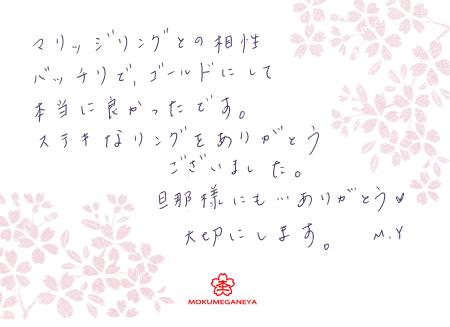 マリッジリングとの相性
バッチリで、ゴールドにして
本当に良かったです。
ステキなリングをありがとう
ございました。
旦那様にも…ありがとう♥
大切にします。 M.Y
MOKUMEGANEYA